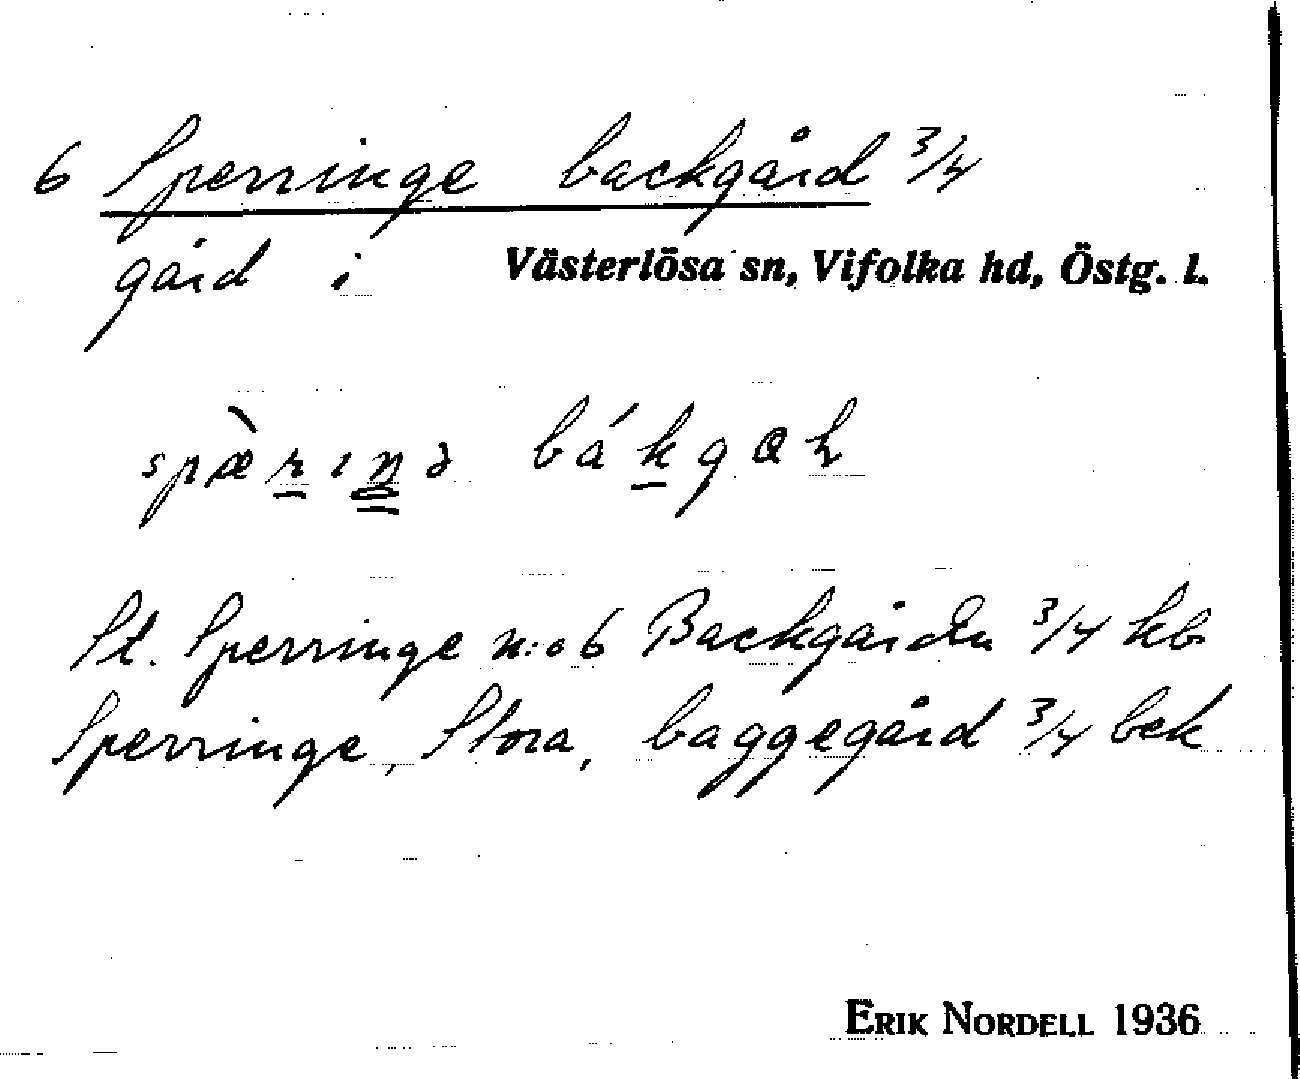 6 Sperringe backgård 3/4
gård i Västerlösa sn, Vifolka hd, Östg. l.
St. Sperringe n:o 6 Backgården 3/4 kb
Sperringe, Stora, baggegård 3/4 bek
ERIK NORDELL 1936